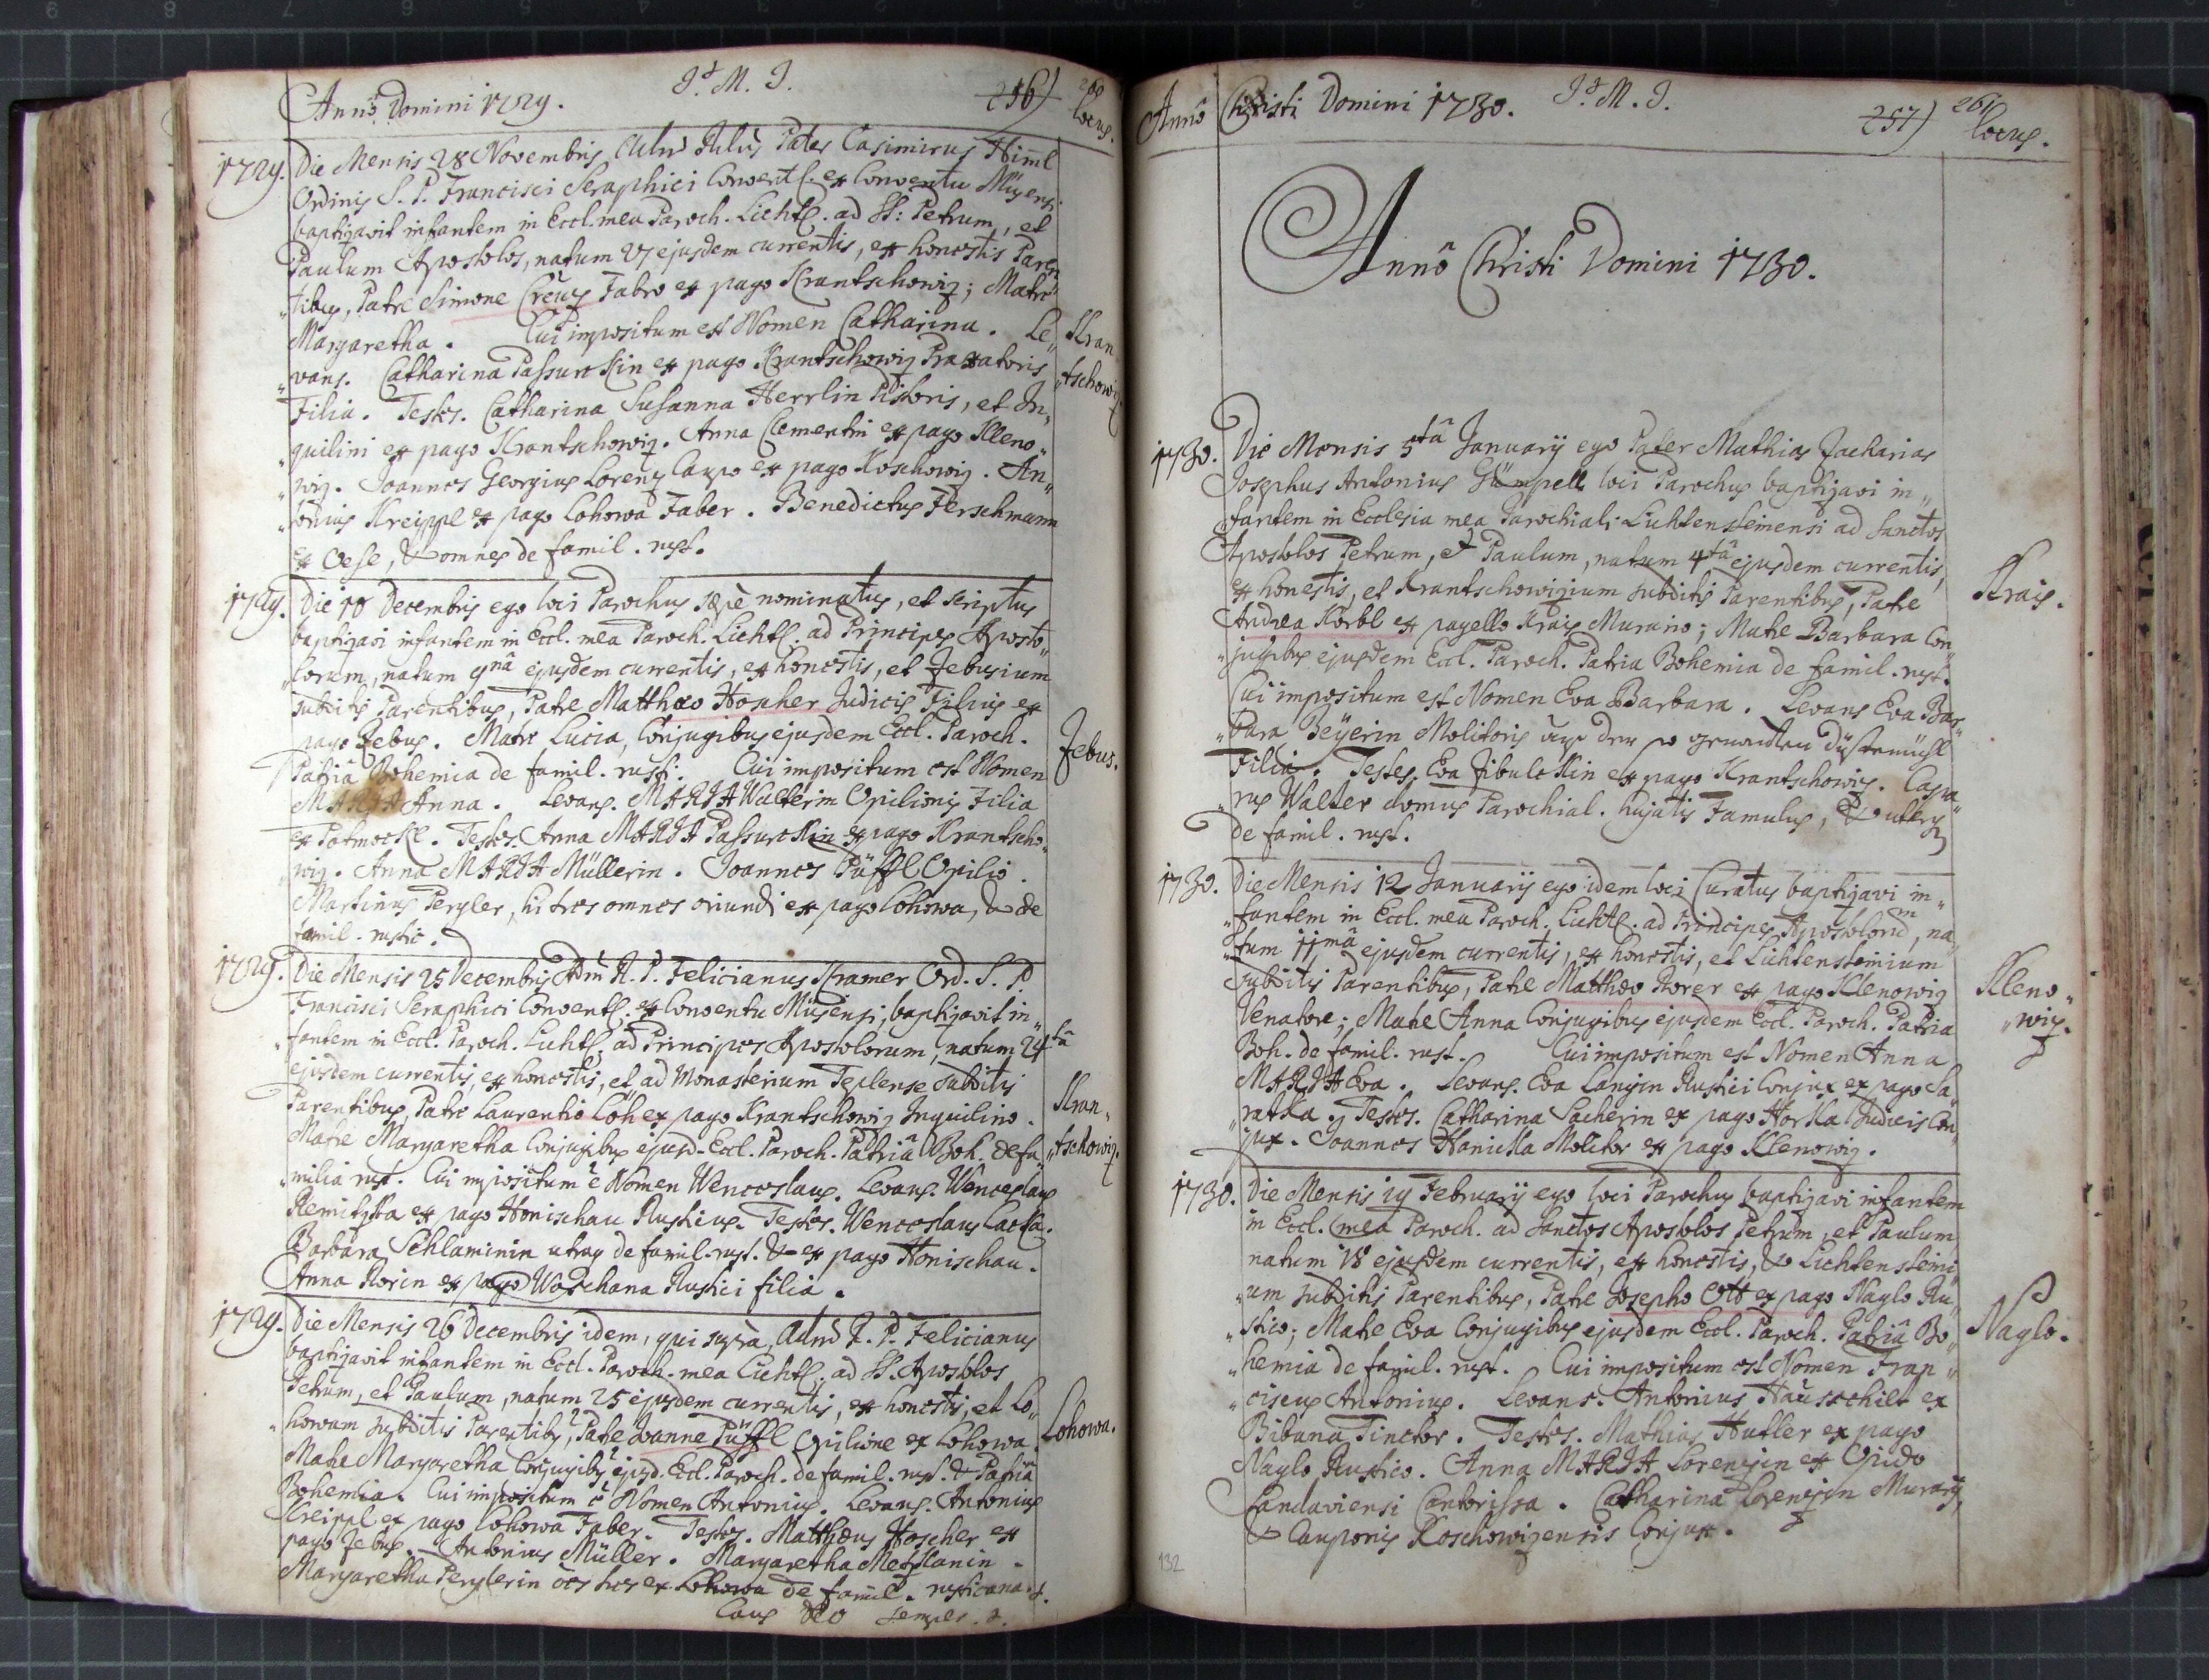 Annô Domini 1729.
J. M. J.
256)
260
locus.
1729. Die Mensis 28 Novembris Adm̄ Pater Casimirus Himl
Ordinis S. P. Francisci Seraphici Convent. ex Conventu
baptizavit infantem in Eccl. mea Paroch. Licht. ad SS: Petrum, et
Paulum Apostolos, natum 27 ejusdem currentis, ex honestis Paren
„tibus, Patre Simone Creuz Fabro ex pago Krantschowiz; Matre
Margaretha. Cui impositum est Nomen Catharina. Le„
„vans. Catharina Passurokin ex pago Krantschowiz Braxatoris
Filia. Testes. Catharina Susanna Herrlin Pistoris, et In„
„quilini ex pago Krantschowiz. Anna Clementin ex pago Kleno„
„wiz. Joannes Georgius Lorenz Caupo ex pago Koschowiz. An„
„tonius Kreippl ex pago Lohowa Faber. Benedictus Ferschmann
ex Oese, & omnes de famil. rust.
Kran
„tschowiz.
1729. Die 10 Decembris ego loci Parochus sæpè nominatus, et scriptus
baptizavi infantem in Eccl. mea Paroch. Licht. ad Principes Aposto„
„lorum, natum 9nâ ejusdem currentis, ex honestis, et Zebusium
subditis Parentibus, Patre Matthæo Hoscher Judicis Filius ex
pago Zebus. Matre Lucia, Conjugibus ejusdem Eccl. Paroch.
Patriâ Bohemia de famil. rusti. Cui impositum est Nomen
MARIA Anna. Levans. MARIA Walterin Opilionis Filia
ex Potmockl. Testes. Anna MARIA Passurokin ex pago Krantscho„
„wiz. Anna MARIA Müllerin. Joannes Püffl Opilio.
Martinus Pergler, hi tres omnes oriundi ex pago Lohowa, & de
famil. rustic.
Zebus.
1729. Die Mensis 25 Decembris Adm̄ R. P. Felicianus Kramer Ord. S. P.
Francisci Seraphici Convent. ex Conventu Misensi, baptizavit in„
„fantem in Eccl. Paroch. Licht. ad Principes Apostolorum, natum 24tâ
ejusdem currentis, ex honestis, et ad Monasterium Teplense subditis
Parentibus, Patre Laurentio Löh ex pago Krantschowiz Inquilino.
Matre Margaretha Conjugibus ejusd. Eccl. Paroch. Patriâ Boh. de fa„
„milia rust. Cui impositum ē Nomen Wenceslaus. Levans. Wenceslaus
Remitzka ex pago Honischau Rusticus. Testes. Wenceslaus Lacka.
Barbara Schlaminin utraq de famil. rust. & ex pago Honischau.
Anna Rorin ex pago Woxchana Rustici filia.
Kran„
„tschowiz.
1729. Die Mensis 26 Decembris idem, qui suprà, Adm̄ R. P. Felicianus
baptizavit infantem in Eccl. Paroch. mea Licht. ad SS. Apostolos
Petrum, et Paulum, natum 25 ejusdem currentis, ex honestis, et Lo„
„howam subditis Parentibus, Patre Joanne Püffl Opilione ex Lohowa.
Matre Margaretha Conjugibus ejusd. Eccl. Paroch. de famil. rust. & Patriâ
Bohemia. Cui impositum ē Nomen Antonius. Levans. Antonius
Kreippl ex pago Lohowa Faber. Testes. Matthæus Hoscher ex
pago Zebus. Antonius Müller. Margaretha Metzlanin.
Margaretha Perglerin oēs tres ex Lohowa de famil. rusticana.
Laus DEO semper.
Lohowa.
Annô Christi Domini 1730.
J. M. J.
257)
261
locus.
Annô Christi Domini 1730.
1730. Die Mensis 5tâ Januarij ego Pater Mathias Zacharias
Josephus Antonius Gümpell loci Parochus baptizavi in„
„fantem in Ecclesia mea Parochiali Lichtensteinensi ad Sanctos
Apostolos Petrum, et Paulum, natum 4tâ ejusdem currentis,
ex honestis, et Krantschowizium subditis Parentibus, Patre
Andrea Korbl ex pagello Krais Murario; Matre Barbara Con„
„jugibus ejusdem Eccl. Paroch. Patria Bohemia de famil. rust.
Cui impositum est Nomen Eva Barbara. Levans Eva Bar„
„bara Beÿerin Molitoris aus der so genandten
Filia. Testes. Eva Zibulckin ex pago Krantschowiz. Caspa„
„rus Walter domus Parochial. hujatis Famulus, & uterq
de famil. rust.
Krais.
1730. Die Mensis 12 Januarij ego idem loci Curatus baptizavi in„
„fantem in Eccl. mea Paroch. Licht. ad Principes Apostolorum, na„
„tum 11mâ ejusdem currentis, ex honestis, et Lichtensteinium
subditis Parentibus, Patre Matthæo Rorer ex pago Klenowiz
Venatore; Matre Anna Conjugibus ejusdem Eccl. Paroch. Patria
Boh. de famil. rust. Cui impositum est Nomen Anna
MARIA Eva. Levans. Eva Langin Rustici Conjux ex pago Sa„
„ratka. Testes. Catharina Sacherin ex pago Horka Judicis Con„
„jux. Joannes Hanicka Molitor ex pago Klenowiz.
Kleno„
„wiz.
1730. Die Mensis 19 Februarij ego loci Parochus baptizavi infantem
in Eccl. mea Paroch. ad Sanctos Apostolos Petrum, et Paulum,
natum 18 ejusdem currentis, ex honestis, & Lichtensteini„
„um subditis Parentibus, Patre Josepho Ott ex pago Naglo Ru„
„stico; Matre Eva Conjugibus ejusdem Eccl. Paroch. Patriâ Bo„
„hemia de famil. rust. Cui impositum est Nomen Fran„
„ciscus Antonius. Levans. Antonius Hausschiler ex
Bibana Tinctor. Testes. Mathias Hutler ex pago
Naglo Rustico. Anna MARIA Lorenzin ex Opido
Landaviensi Cantorissa. Catharina Lorenzin Murarij,
& Cauponis Koschowizensis Conjux.
Naglo.
132